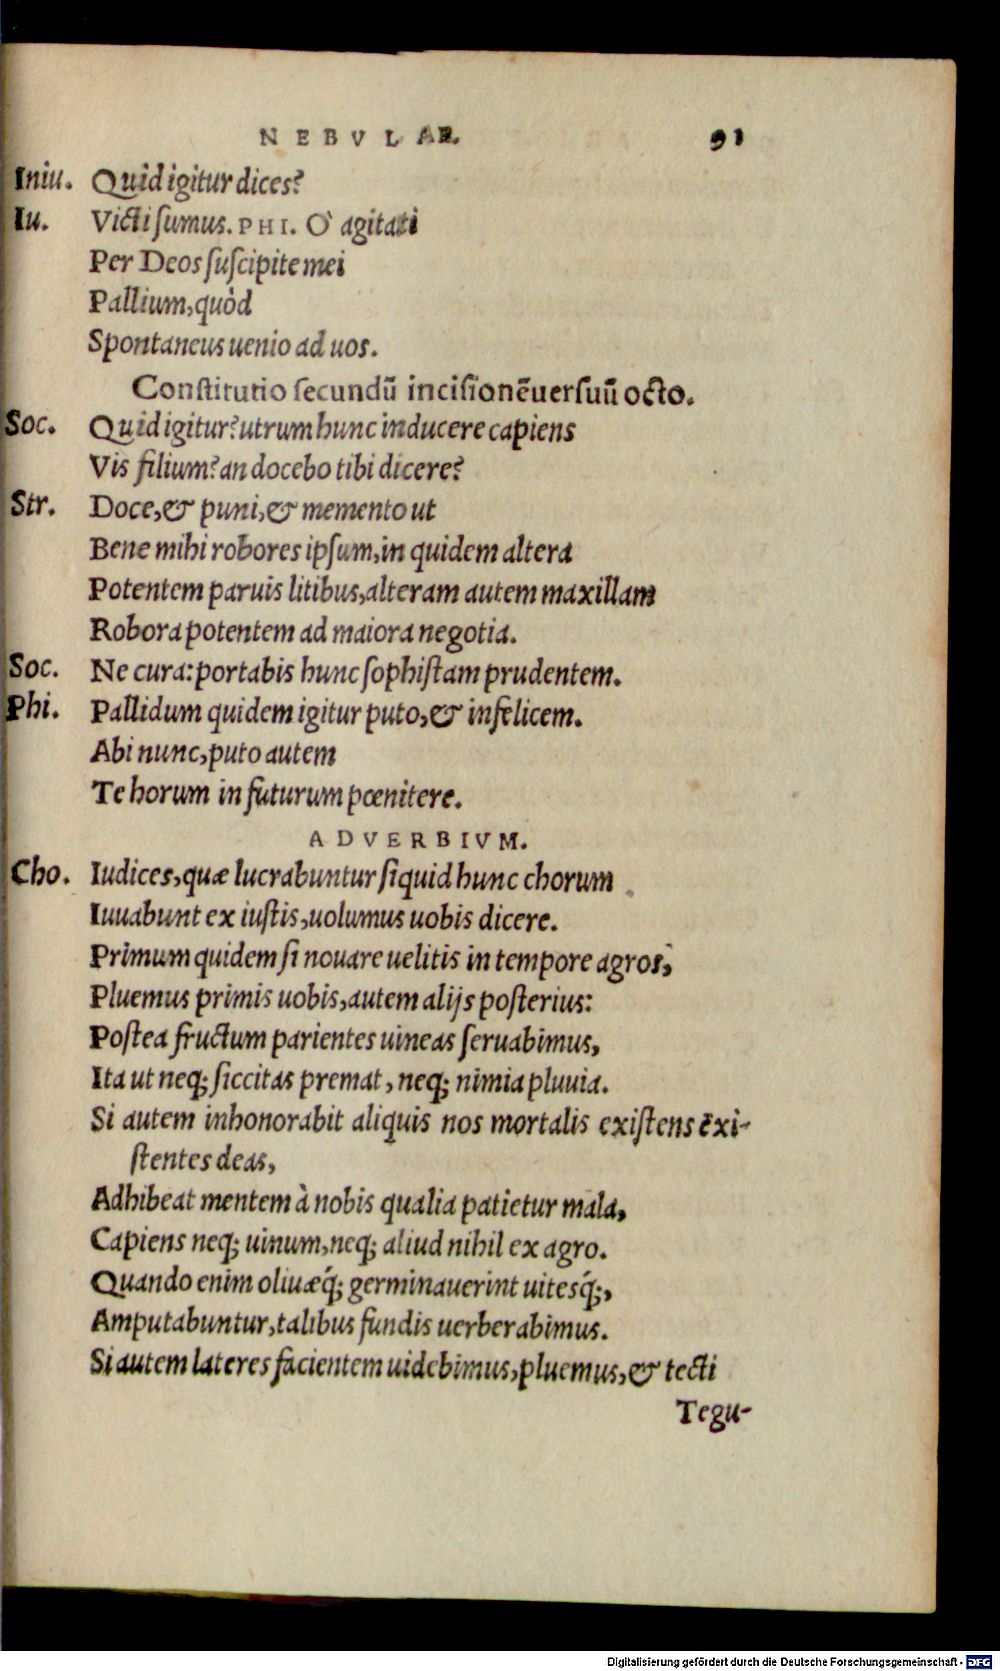 NEBVLAE. 91
Iniu. Quid igitur dices?
Iu. Victi sumus. PHI. O` agitati
Per Deos suscipite mei
Pallium, quòd
Spontaneus uenio ad uos.
Constitutio secundũ incisionẽ uersuũ octo.
Soc. Quid igitur? utrum hunc inducere capiens
Vis filium? an docebo tibi dicere?
Str. Doce, & puni, & memento ut
Bene mihi robores ipsum, in quidem altera
Potentem paruis litibus, alteram autem maxillam
Robora potentem ad maiora negotia.
Soc. Ne cura: portabis hunc sophistam prudentem.
Phi. Pallidum quidem igitur puto, & infelicem.
Abi nunc, puto autem
Te horum in futurum pœnitere.
ADVERBIVM.
Cho. Iudices, quæ lucrabuntur siquid hunc chorum
Iuuabunt ex iustis, uolumus uobis dicere.
Primum quidem si nouare uelitis in tempore agros,
Pluemus primis uobis, autem alijs posterius:
Postea fructum parientes uineas seruabimus,
Ita ut neq; siccitas premat, neq; nimia pluuia.
Si autem inhonorabit aliquis nos mortalis existens exi-
stentes deas,
Adhibeat mentem à nobis qualia patietur mala,
Capiens neq; uinum, neq; aliud nihil ex agro.
Quando enim oliuæq́; germinauerint uitesq́;,
Amputabuntur, talibus fundis uerberabimus.
Si autem lateres facientem uidebimus, pluemus, & tecti
Tegu-
Digitalisierung gefördert durch die Deutsche Forschungsgemeinschaft - DFG